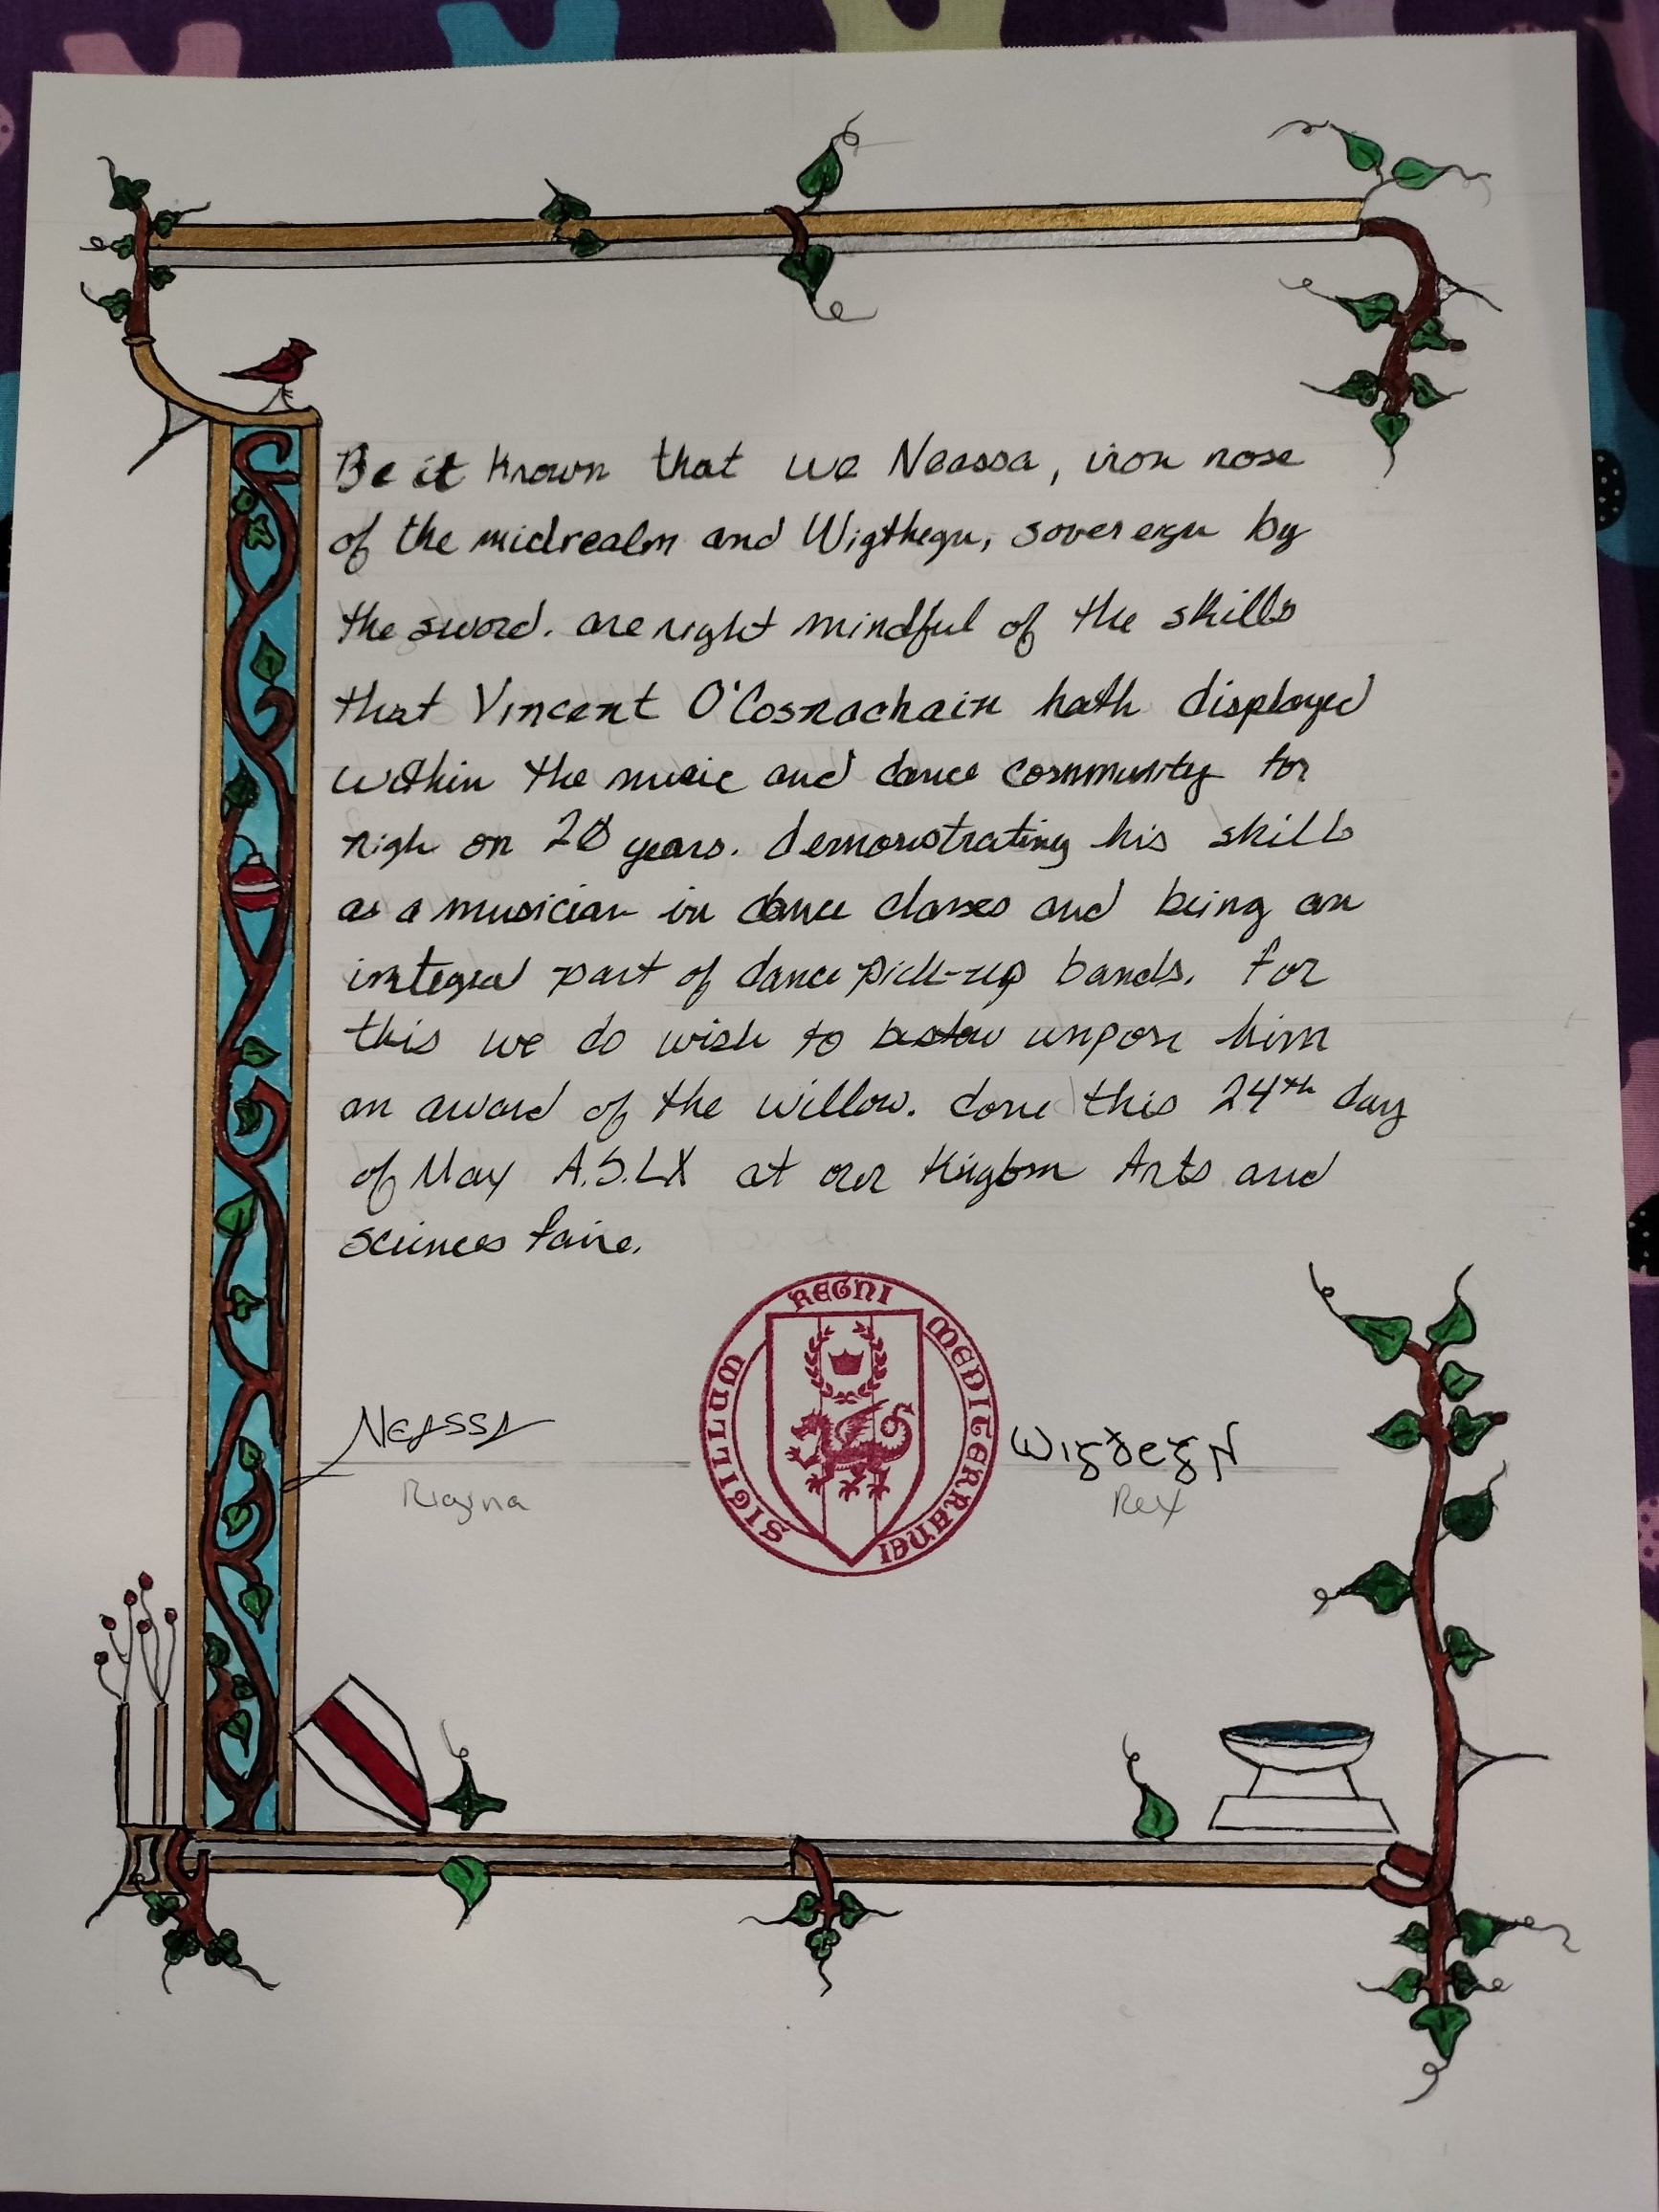 Be it known that we Neassa, iron rose
of the midrealm and Wigthegn, sovereign by
the sword. are right mindful of the skills
that Vincent O'Cosnachain hath displayed
within the music and dance community for
nigh on 20 years. demonstrating his skill
as a musician in dance classes and being an
integral part of dance pick-up bands. for
this we do wish to bestow unpon him
an award of the willow. done this 24th day
of May A.S.LX at our Kingdom Arts and
sciences faire.
SIGILLUM REGNI MEDITERRANEI
NEASSA
Rigina
Rex